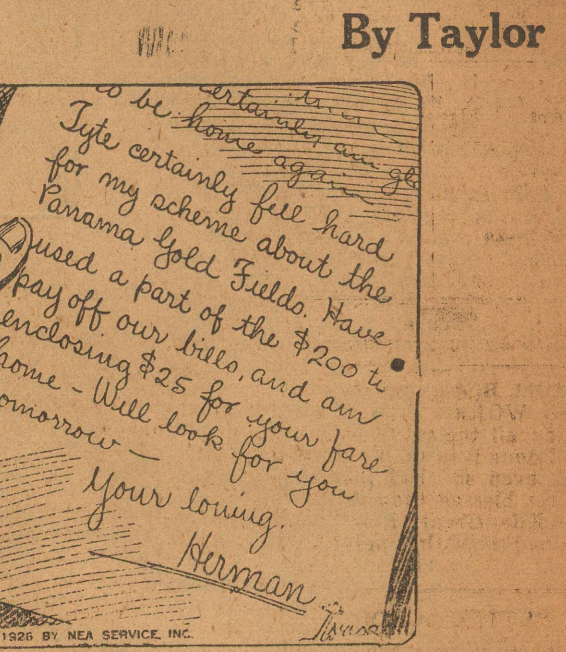 By Taylor
certainly am
to be home again
Tyte certainly fell hard
for my scheme about the
Panama Gold Fields. Have
used a part of the $200 to
pay off our bills, and am
enclosing $25 for your fare
home - Will look for you
tomorrow -
Your loving.
Herman
1926 BY NEA SERVICE, INC.